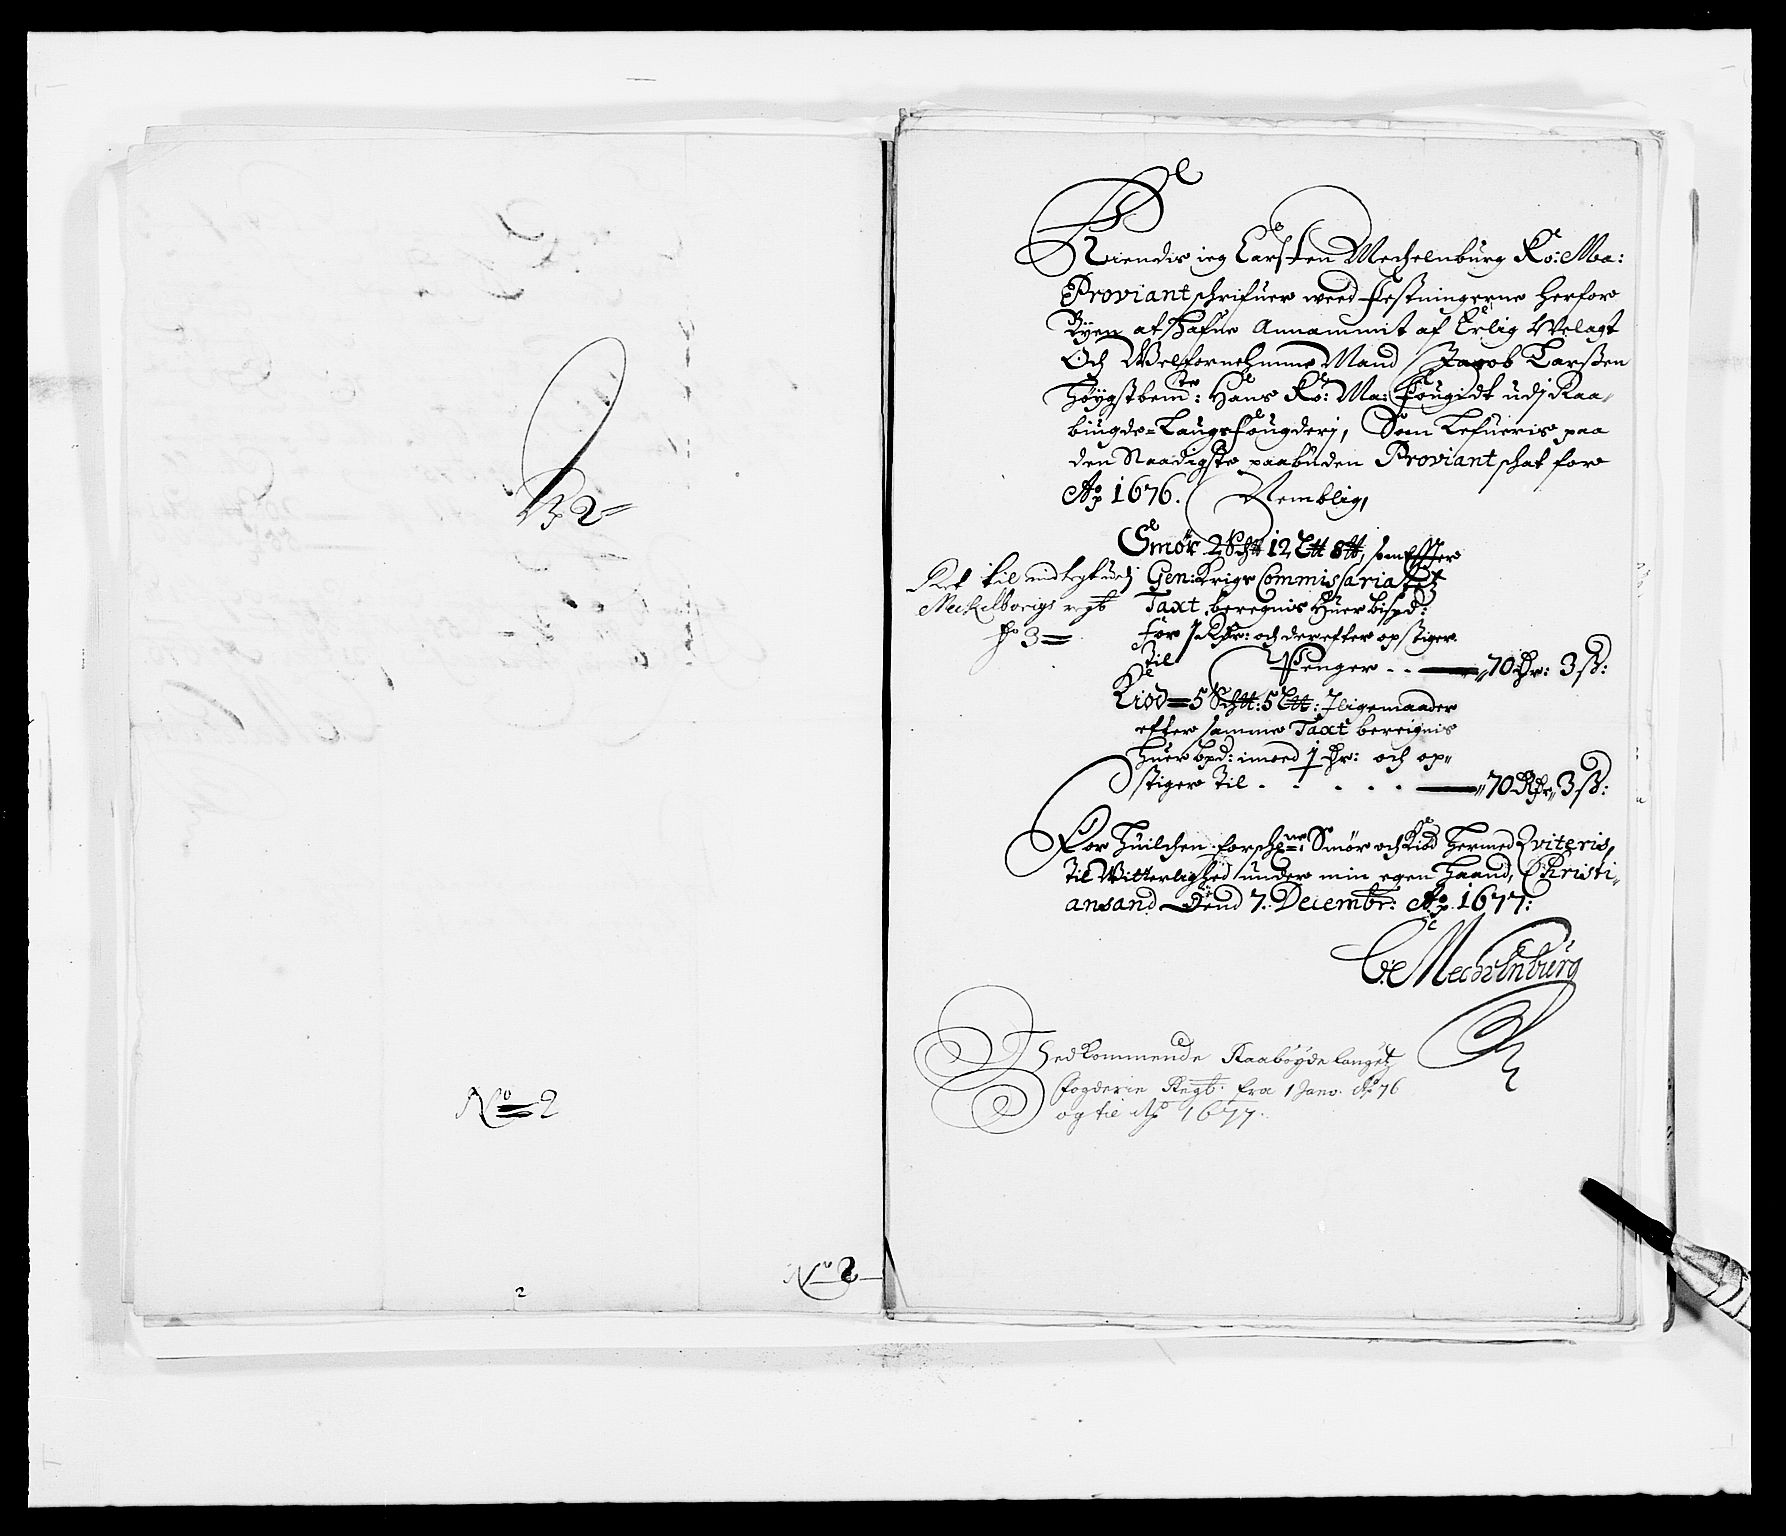 No 2
No 2
2
Kiendis ieg Carsten Mechelnburg Ko: Ma:
Proviantschrifuer weed Festningerne herfor
Byen at Hafue Annammit af Erlig Welagt
Och Welfornehmme Mand Jacob Larssen
Høygstbemte: Hans Ko: Ma: Fougidt udj Raa-
biugde=Laugs Fougderj, Som Lefueris paa
den Naadigste paabuden Proviantschat for
Ao 1676. Nemblig,
Smør 2 Schtt 12 Ltt 8 tt, som Effter
Gen: Krigs Commissariatet
Taxt beregnis Huer bispd:
for Rdr: och derefter opstiger
til Penger . . — 70 Dr: 3 s:
Kiød = 5 Schtt: 5 Ltt: Jligemaader
efter samme Taxt bereignis
huer bpd: imoed 1 Dr: och op-
stiger til . . . . . — 70 Rdr 3 s:
Ret til indtegt udj
Mechelborigs regb
fo 3 =
For huilchen forschne: Smør och Kiød hermed Qviteris,
til Witterlighed under min egen Haand, Christi-
ansand Dend 7. Decembr: Ao. 1677:
C: Mechelnburg
Vedkommende Raabøydelauget
Fogderie Regb: fra 1 Janv. Ao 76
og til Ao 1677.